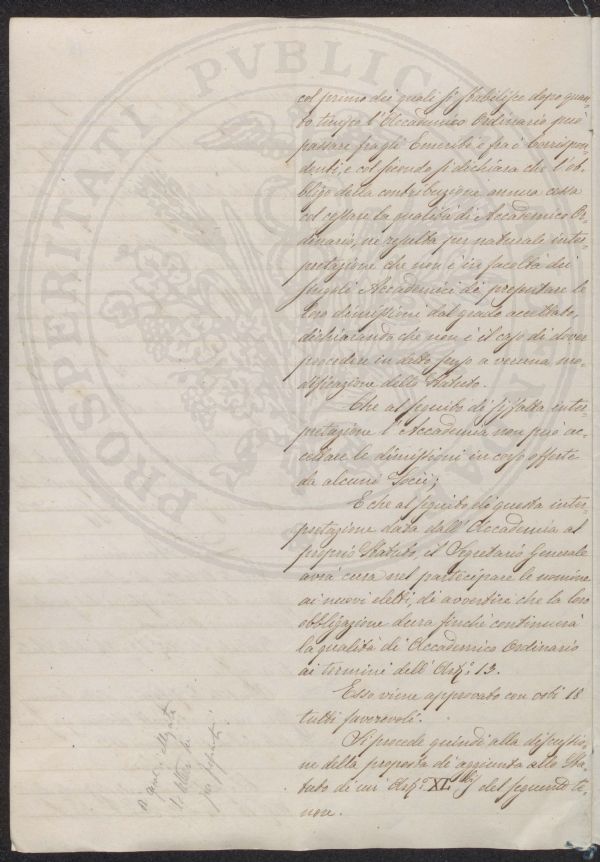 col primo dei quali si stabilisce dopo quan-
to tempo l'Accademico Ordinario può
passare fra gli Emeriti e fra i Corrispon-
denti, e col secondo si dichiara che l'ob-
bligo della contribuzione annua cessa
col cessare la qualità di Accademico Or-
dinario, ne risulta per naturale inter-
pretazione che non è in facoltà dei
singoli Accademici di presentare le
loro dimissioni dal grado accettato,
dichiarando che non è il caso di dover
procedere in detto senso a veruna mo-
dificazione dello Statuto.
Che al seguito di siffatta inter-
pretazione l'Accademia non può ac-
cettare le dimissioni in corso offerte
da alcuni Socii;
E che al seguito di questa inter-
pretazione data dall'Accademia al
proprio Statuto, il Segretario Generale
avrà cura nel partecipare le nomine
ai nuovi eletti, di avvertire che la loro
obbligazione dura finché continuerà
la qualità di Accademico Ordinario
ai termini dell'Art.° 13.
Esso viene approvato con voti 18
tutti favorevoli.
Si procede quindi alla discussio-
ne della proposta di aggiunta allo Sta-
tuto di un Art.° XI bis del seguente te-
nore.
PROSPERITATI PVBLICAE